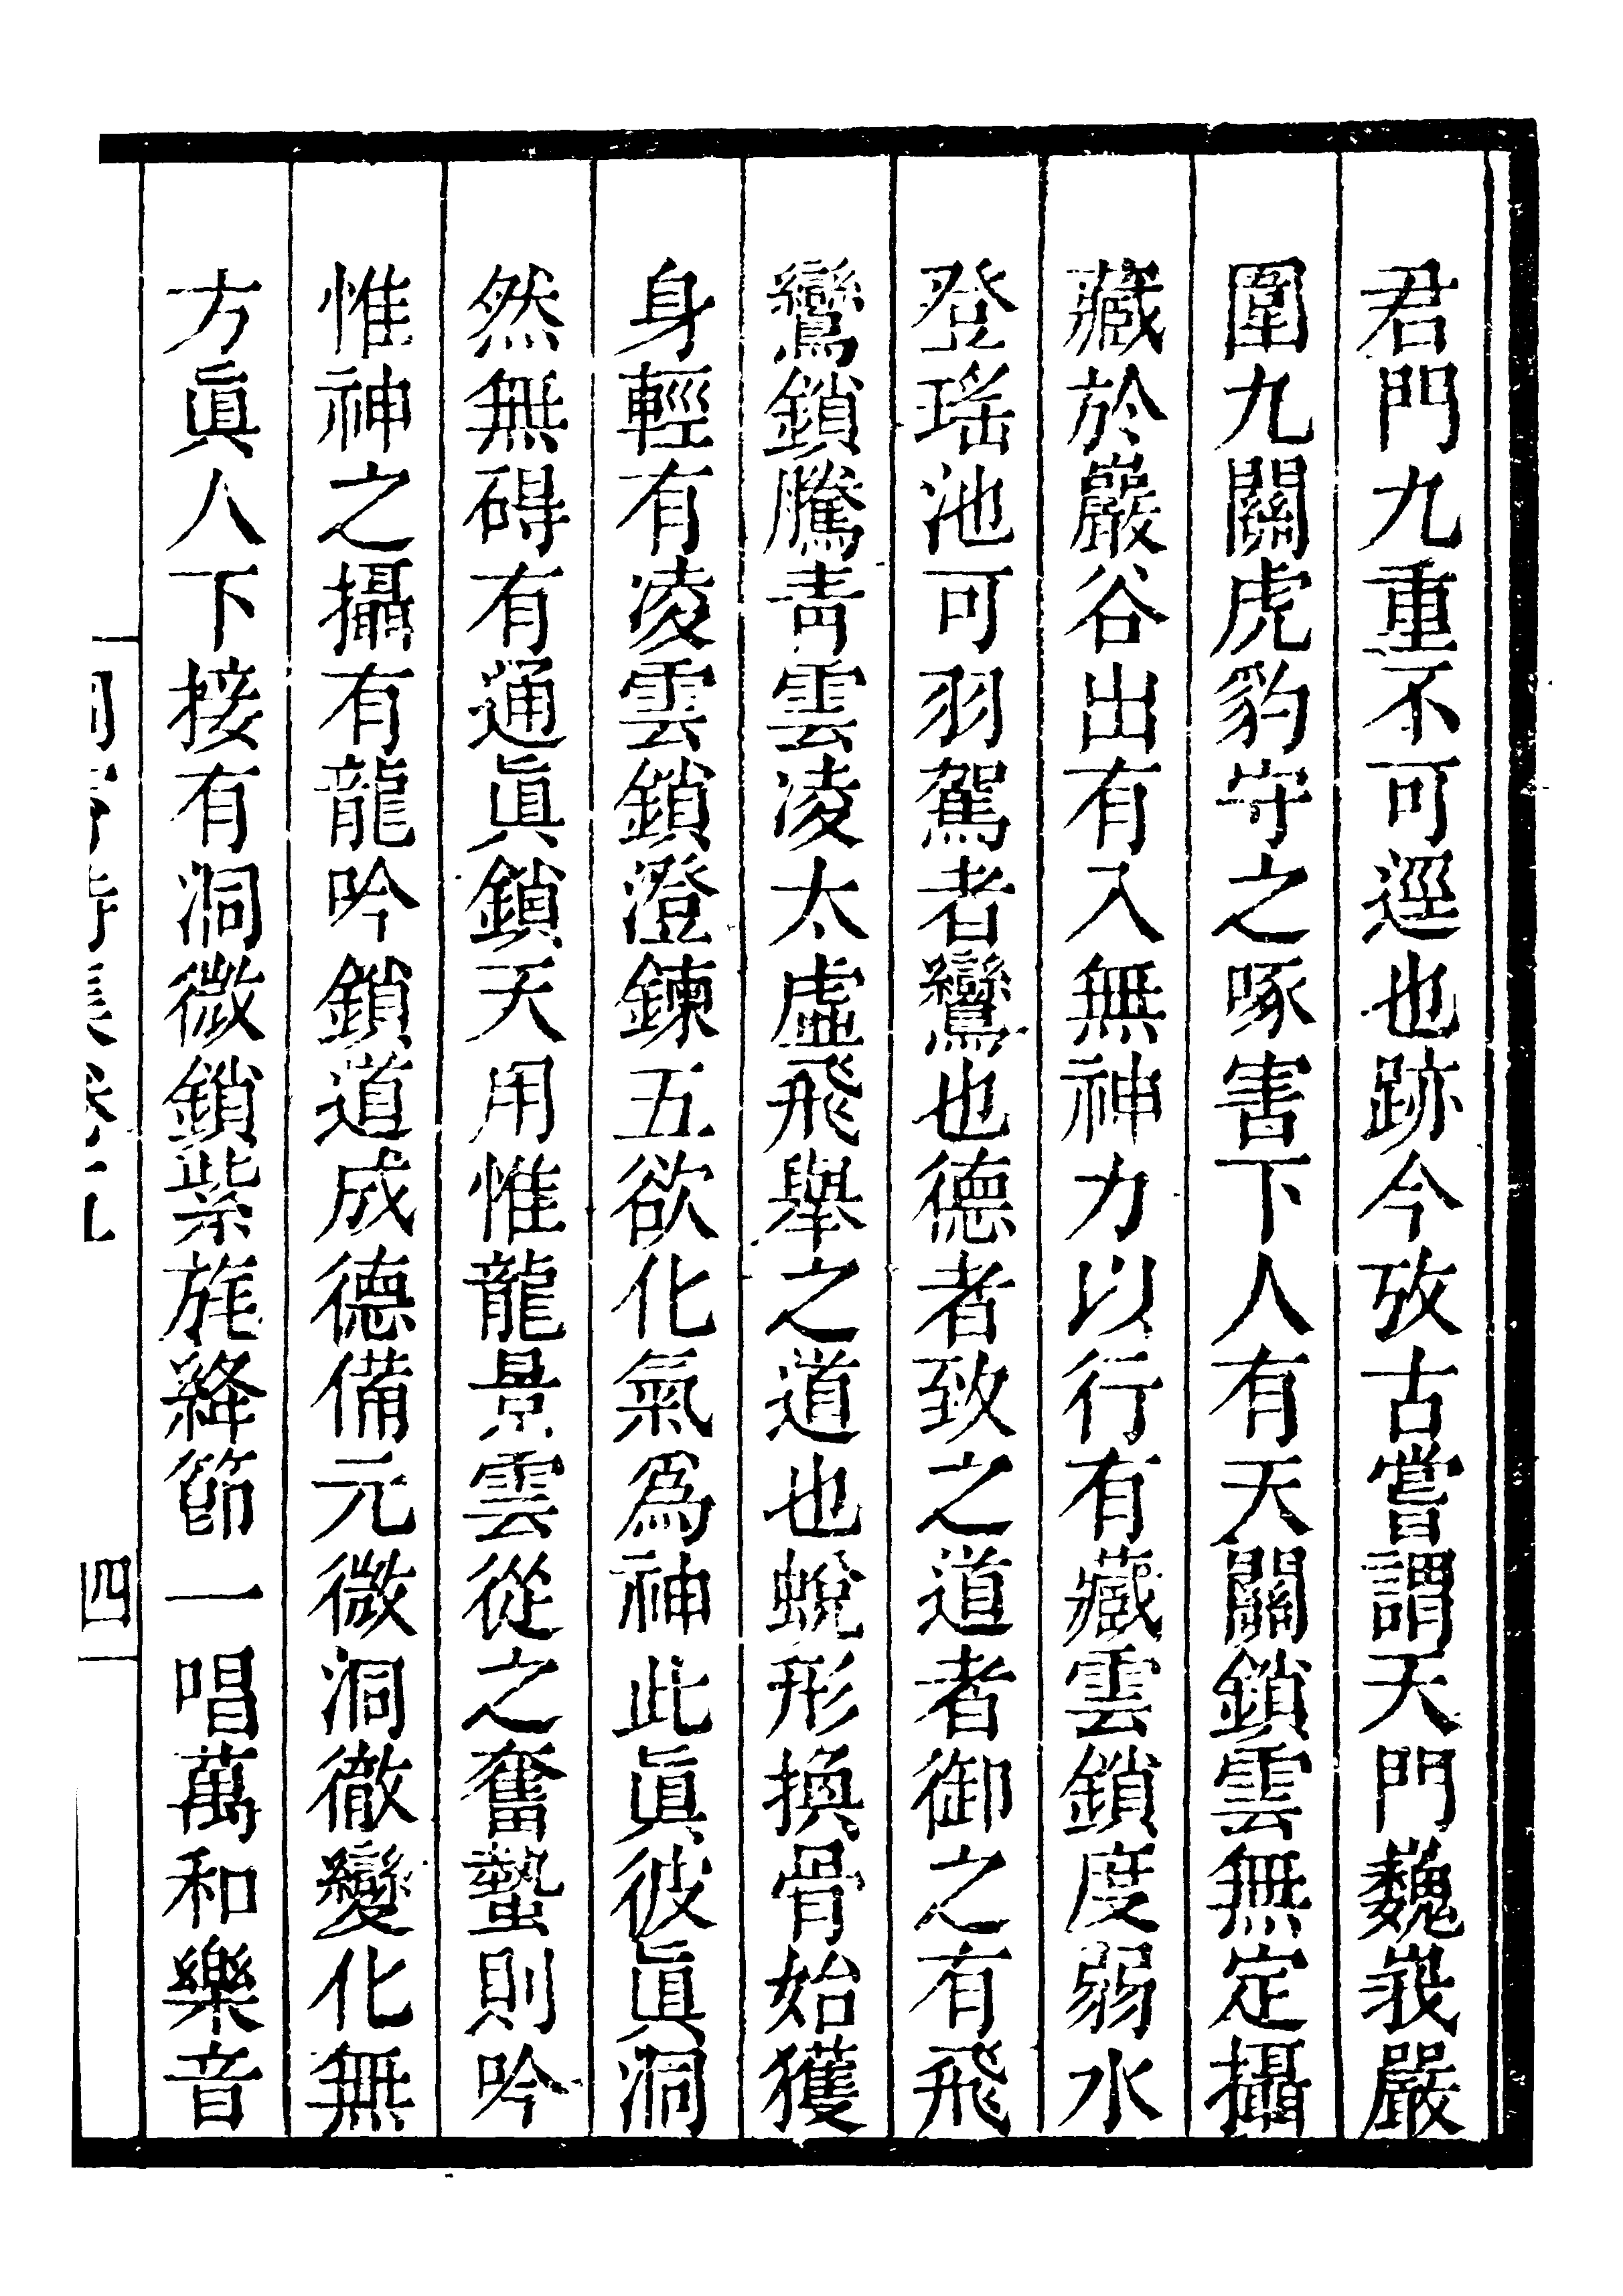 君門九重不可逕也跡今攷古嘗謂天門巍峩嚴
圍九關虎豹守之啄害下人有天關鎖雲無定攝
藏於巖谷出有入無神力以行有藏雲鎖度弱水
登瑤池可羽駕者鸞也德者致之道者御之有飛
鸞鎖騰青雲凌太虛飛舉之道也蛻形換骨始獲
身輕有凌雲鎖澄鍊五欲化氣爲神此眞彼眞洞
然無碍有通眞鎖天用惟龍景雲從之奮蟄則吟
惟神之攝有龍吟鎖道成德備元微洞徹變化無
方眞人下接有洞微鎖紫旄絳節一唱萬和樂音
四